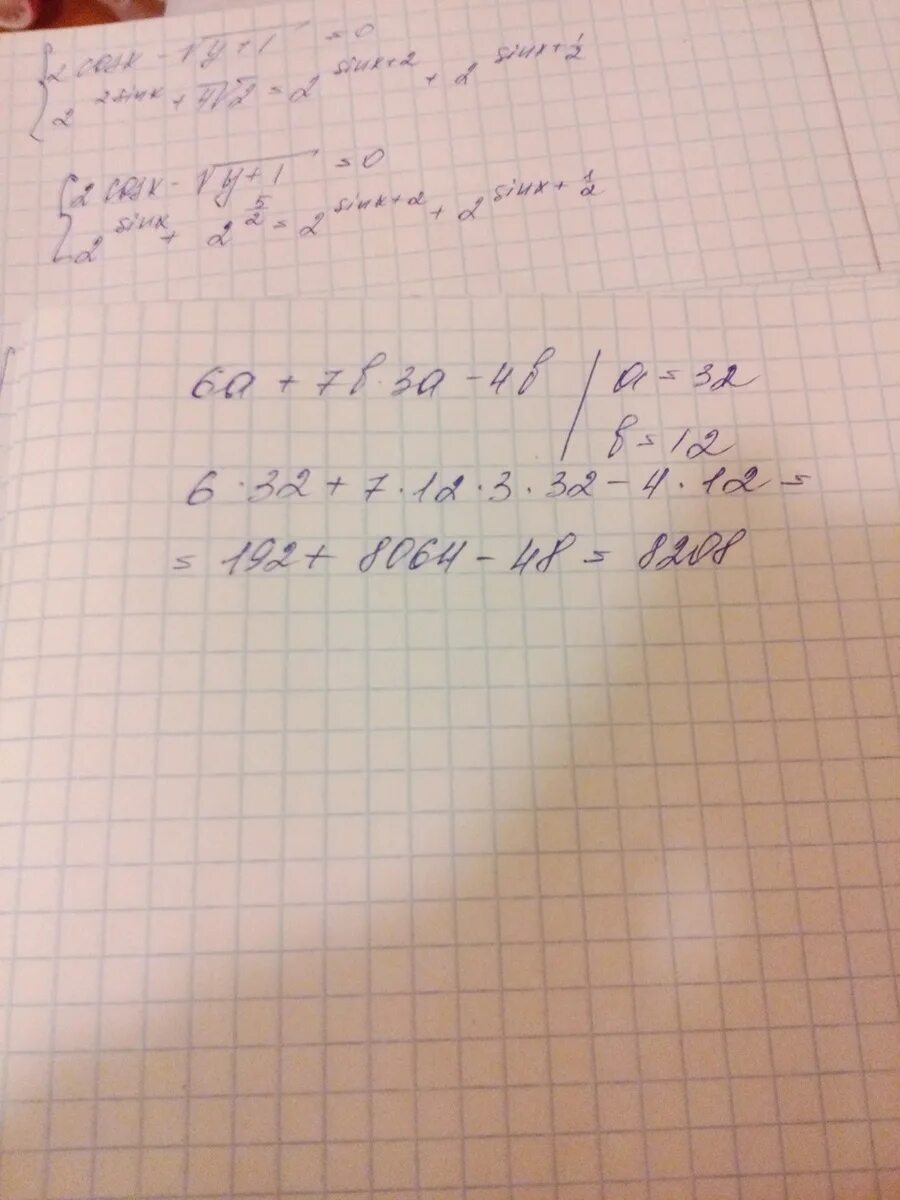 {2 cosx - √y+1 = 0
2^2sinx + 4√2 = 2^sinx+2 + 2^sinx+1/2
{2 cosx - √y+1 = 0
2^sinx + 2^5/2 = 2^sinx+2 + 2^sinx+1/2
6a + 7в·3a - 4в | a = 32
в = 12
6·32 + 7·12·3·32 - 4·12 =
= 192 + 8064 - 48 = 8208